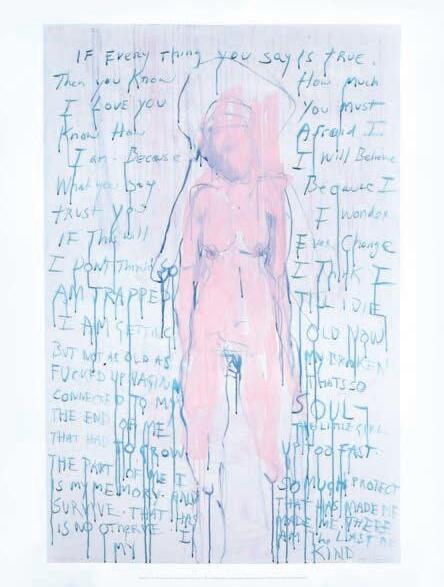 IF Every thing you say is TRUE.
Then you Know How much
I LOVE YOU You must
Know How Afraid I
I am. Because I Will Believe
What you say Because I
TRUST YOU I Wonder
IF This will Ever Change
I DONT Think I Think I
AM TRAPPED TILL I DIE
I AM GETTING OLD NOW
BUT NOT AS OLD AS MY BROKEN
FUCKED UP VAGINA THATS SO
CONNECTED TO MY SOUL
THE END OF ME THE LITTLE GIRL
THAT HAD TO GROW UP TOO FAST.
THE PART OF ME I SO MUCH PROTECT
IS MY MEMORY. AND THAT HAS MADE ME
SURVIVE. THAT HAS MADE ME THERE
IS NO OTHER I AM the LAST OF
MY KIND